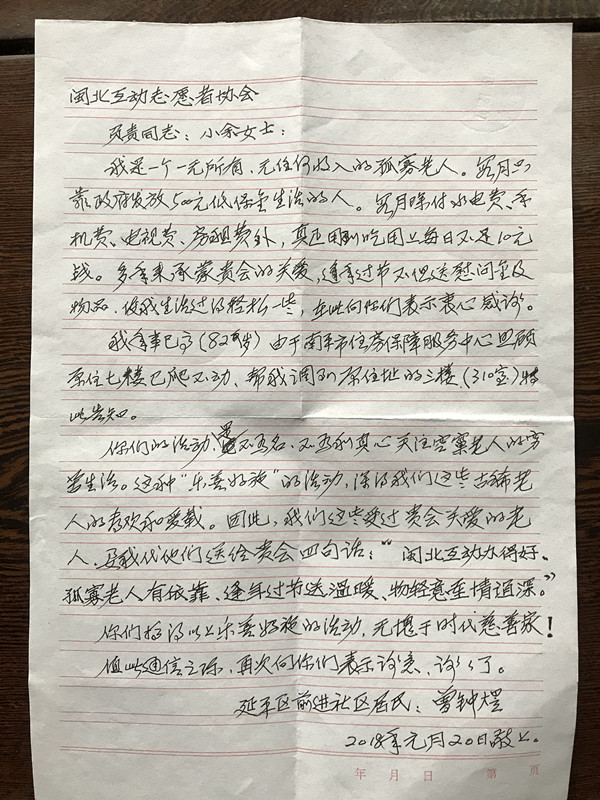 闽北互动志愿者协会
负责同志：小余女士：
我是一个一无所有、无任何收入的孤寡老人。每月只
靠政府发放500元低保金生活的人。每月除付水电费、手
机费、电视费、房租费外，真正用到吃用上每日又不足10元
钱。多年来承蒙贵会的关爱，逢年过节不但送慰问金及
物品，使我生活过得轻松一些，在此向你们表示衷心感谢。
我年事已高（82岁）由于南平市住房保障服务中心照顾
原住七楼已爬不动、帮我调到原住址的三楼（310室）特
此告知。
你们的活动，是不为名、不为利真心关注空巢老人的穷
苦生活。这种“乐善好施”的活动，深得我们这些古稀老
人的喜欢和爱戴。因此，我们这些受过贵会关爱的老
人，要我代他们送给贵会四句话：“闽北互动办得好、
孤寡老人有依靠、逢年过节送温暖、物轻意重情谊深。”
你们搞得以上乐善好施的活动，无愧于时代慈善家！
值此通信之际，再次向你们表示谢意、谢谢了。
延平区前进社区居民：曾钟煜
2018年元月20日敬上。
年 月 日 第 页